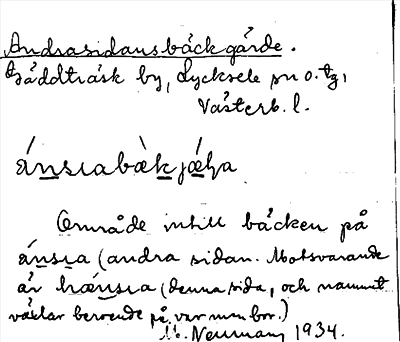 Andrasidansbäckgärde.
Gäddträsk by, Lycksele sn o. tg,
Västerb. l.
ánsıabàkjǽɽa
Område intill bäcken på
ánsıa (andra sidan. Motsvarande
är hænsıa (denna sida, och namnet
växlar beroende på var man bor.)
M. Neuman, 1934.